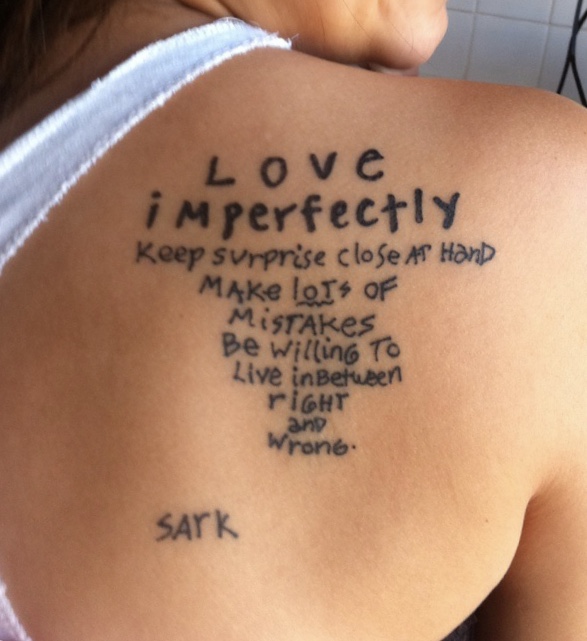 Love
iMperfectly
Keep surprise close AT HanD
MAKe lOTs OF
MiSTAKes
Be willinG To
Live inBetween
riGHT
anD
Wrong.
SArK